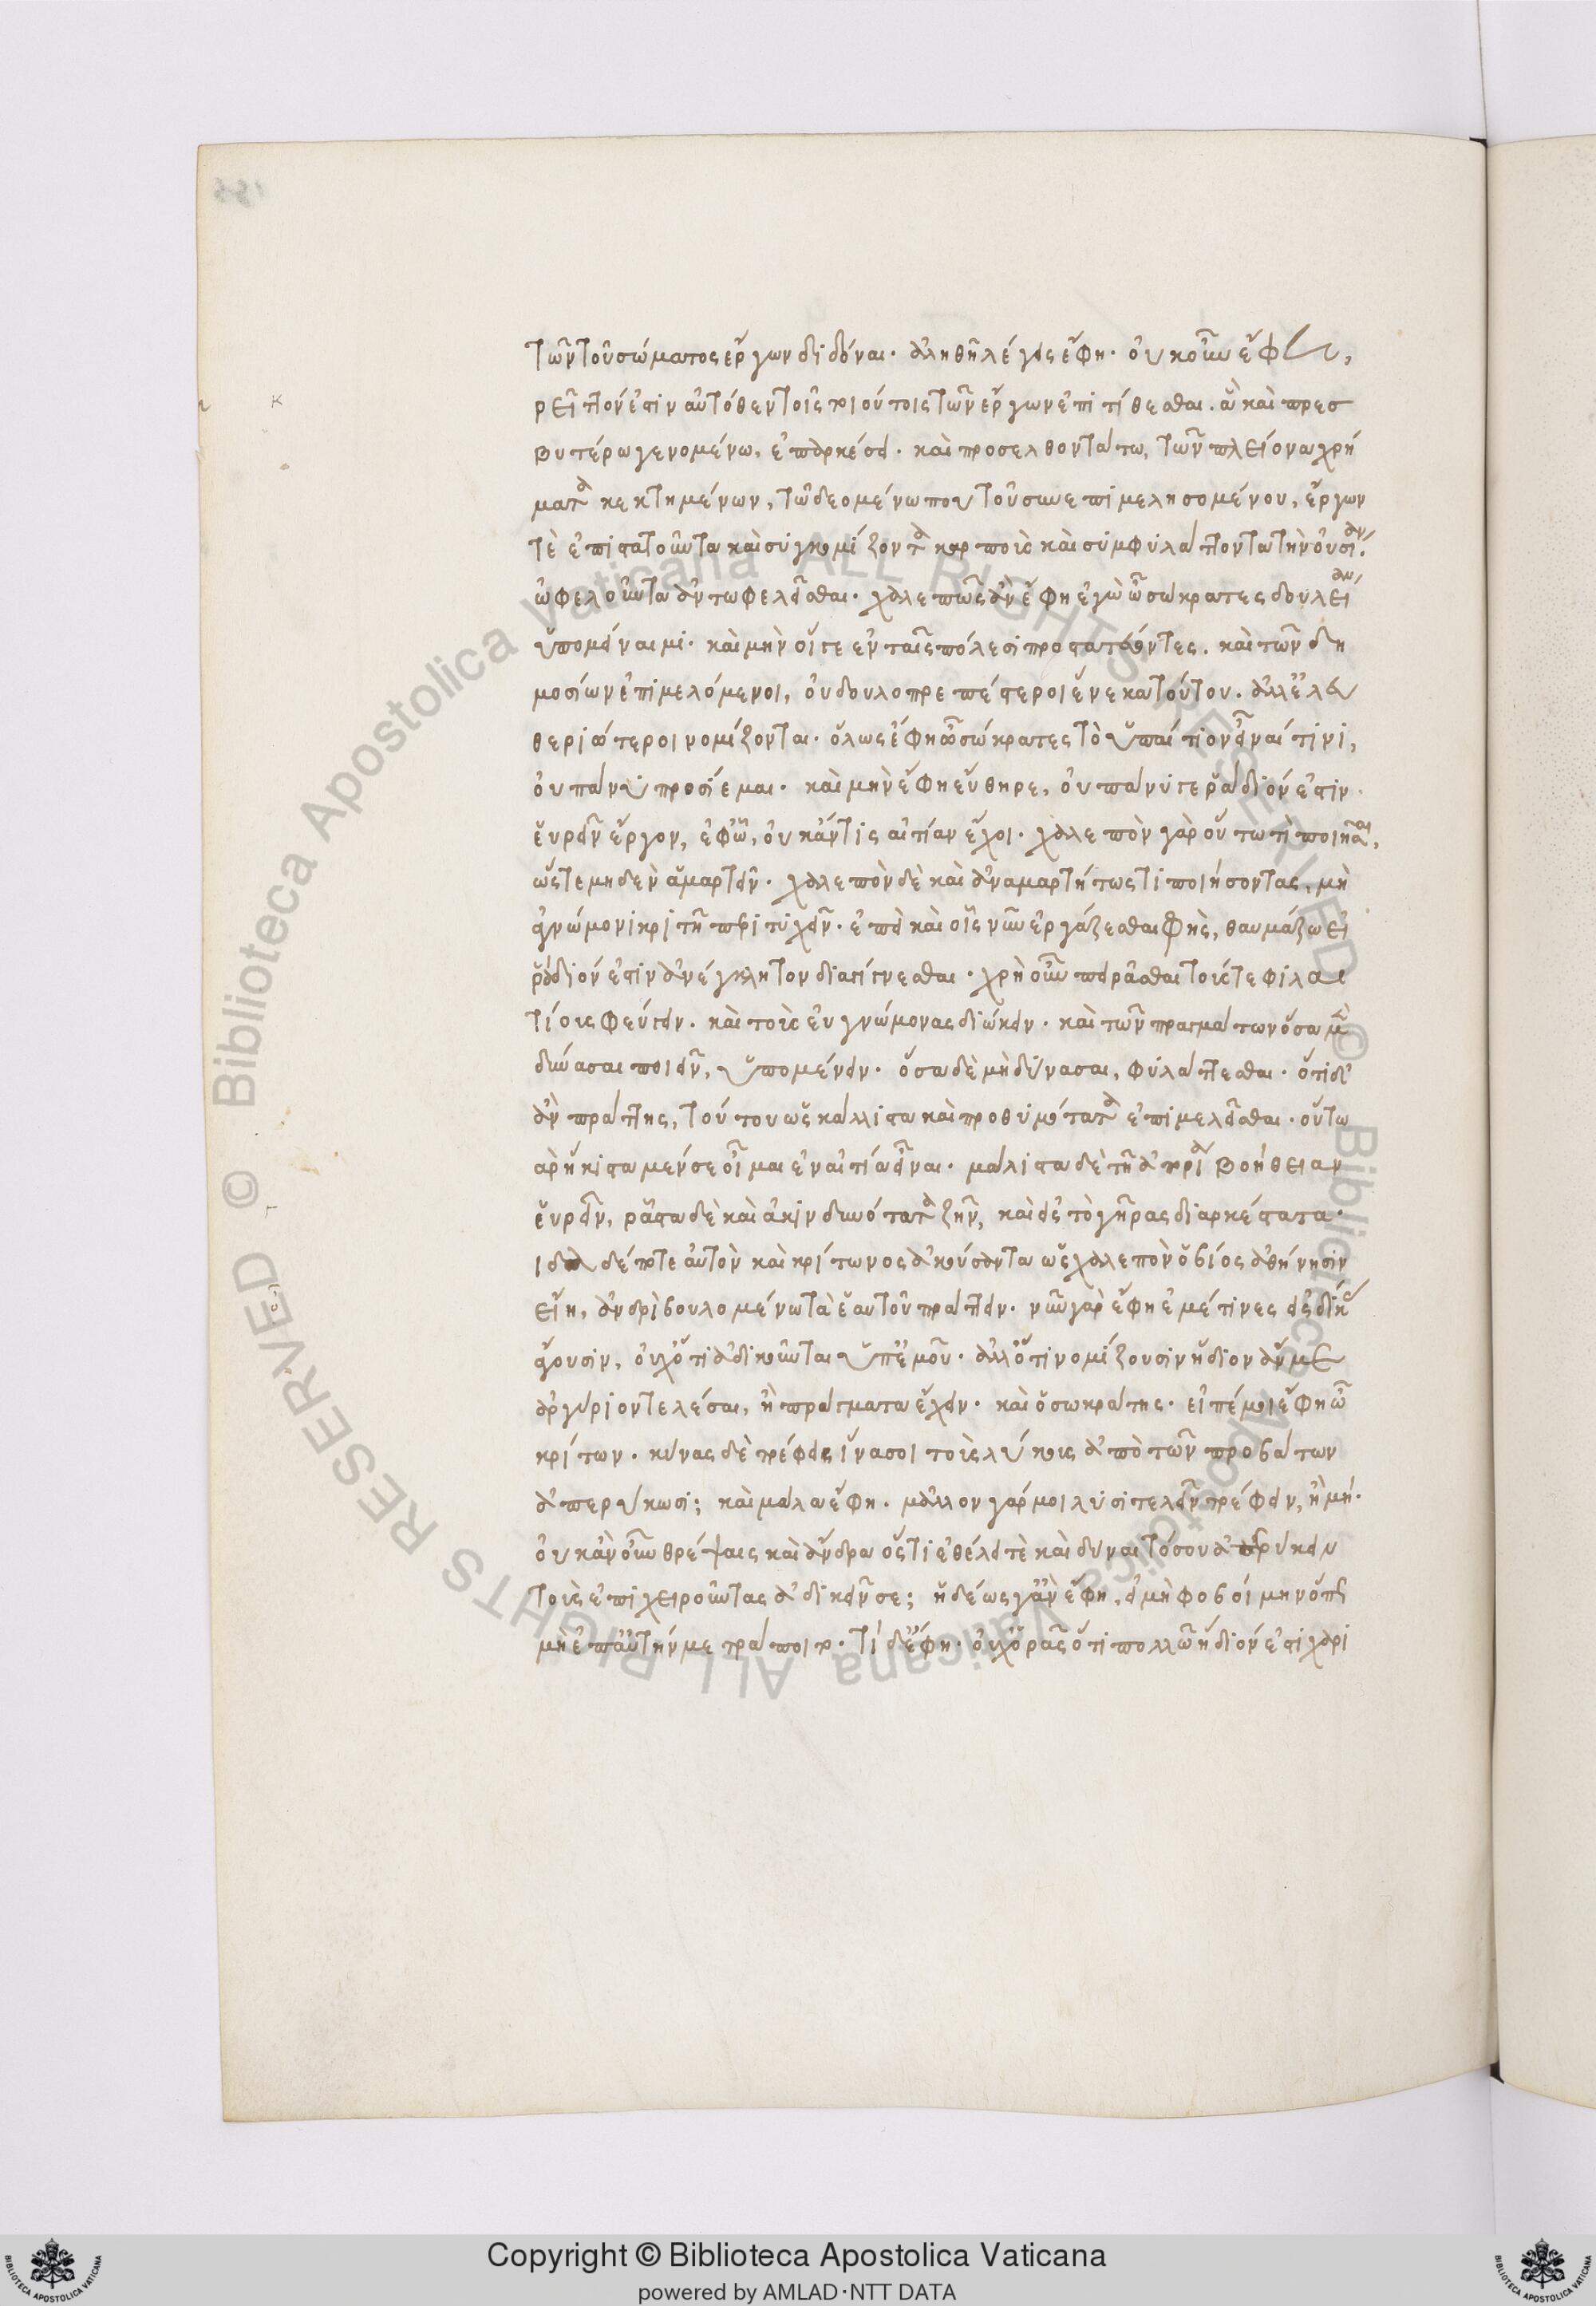 τῶν τοῦ σώματος ἔργων διδόναι· ἀληθῆ λέγεις ἔφη· οὐκοῦν ἔφη,
ρεῖττόν ἐστιν αὐτόθεν τοῖς τοιούτοις τῶν ἔργων ἐπιτίθεσθαι. ἃ καὶ πρεσ
βυτέρω γενομένω, ἐπαρκέσει· καὶ προσελθόντα τω, τῶν πλείονα χρή
ματα κεκτημένων, τῶ δεομένω που τοῦ συνεπιμελησομένου, ἔργων
τὲ ἐπιστατοῦντα καὶ συγκομίζοντα καρποὺς καὶ συμφυλάττοντα τὴν οὐσίαν.
ὠφελοῦντα ἀντωφελεῖσθαι· χαλεπῶς ἂν ἔφη ἐγὼ ὦ σώκρατες δουλείαν
ὑπομείναιμι· καὶ μὴν οἵ γε ἐν ταῖς πόλεσι προστατεύοντες. καὶ τῶν δη
μοσίων ἐπιμελόμενοι, οὐ δουλοπρεπέστεροι ἕνεκα τούτου. ἀλλ' ἐλευ
θεριώτεροι νομίζονται· ὅλως ἔφη ὦ σώκρατες τὸ ὑπαίτιον εἶναί τινι,
οὐ πάνυ προσίεμαι· καὶ μὴν ἔφη εὔθηρε, οὐ πάνυ γε ῥάδιόν ἐστιν
εὑρεῖν ἔργον, ἐφ' ὧ, οὐκ ἄν τις αἰτίαν ἔχοι· χαλεπὸν γὰρ οὕτω τὶ ποιῆσαι,
ὥστε μηδὲν ἁμαρτεῖν· χαλεπὸν δὲ καὶ ἀναμαρτήτως τὶ ποιήσοντας, μὴ
ἀγνώμονι κριτῆ περιτυχεῖν· ἐπεὶ καὶ οἷς νῦν ἐργάζεσθαι φὴς, θαυμάζω εἰ
ῥάδιόν ἐστιν ἀνέγκλητον διαγίγνεσθαι· χρὴ οὖν πειρᾶσθαι τούς τε φιλαι
τίους φεύγειν· καὶ τοὺς εὐγνώμονας διώκειν· καὶ τῶν πραγμάτων ὅσα μὲν
δύνασαι ποιεῖν, ὑπομένειν· ὅσα δὲ μὴ δύνασαι, φυλάττεσθαι· ὅτι δ'
ἂν πράττης, τούτου ὡς κάλλιστα καὶ προθυμότατα ἐπιμελεῖσθαι· οὕτω
γὰρ ἥκιστα μέν σε οἶμαι ἐν αἰτία εἶναι· μάλιστα δὲ τῆ ἀπορία βοήθειαν
εὑρεῖν, ῥᾶστα δὲ καὶ ἀκινδυνότατα ζῆν, καὶ εἰς τὸ γῆρας διαρκέστατα·
οἶδα δέ ποτε αὐτὸν καὶ κρίτωνος ἀκούσαντα ὡς χαλεπὸν ὁ βίος ἀθήνησιν
εἴη, ἀνδρὶ βουλομένω τὰ ἑαυτοῦ πράττειν· νῦν γὰρ ἔφη ἐμέ τινες εἰς δίκας
ἄγουσιν, οὐχ ὅτι ἀδικοῦνται ὑπ' ἐμοῦ· ἀλλ' ὅτι νομίζουσιν ἥδιον ἄν με
ἀργύριον τελέσαι, ἢ πράγματα ἔχειν· καὶ ὁ σωκράτης· εἰπέ μοι ἔφη ὦ
κρίτων· κύνας δὲ τρέφεις ἵνα σοι τοὺς λύκους ἀπὸ τῶν προβάτων
ἀπερύκωσι; καὶ μάλα ἔφη. μᾶλλον γάρ μοι λυσιτελεῖν τρέφειν, ἢ μή·
οὐκ ἂν οὖν θρέψαις καὶ ἄνδρα ὅστις ἐθέλει τὲ καὶ δύναιτό σου ἀπερύκειν
τοὺς ἐπιχειροῦντας ἀδικεῖν σε; ἡδέως γ' ἂν ἔφη, εἰ μὴ φοβοίμην ὅπως
μὴ ἐπ' αὐτήν με τράποιτο· τί δ' ἔφη· οὐχ ὁρᾶς ὅτι πολλῶ ἥδιόν ἐστι χαρι